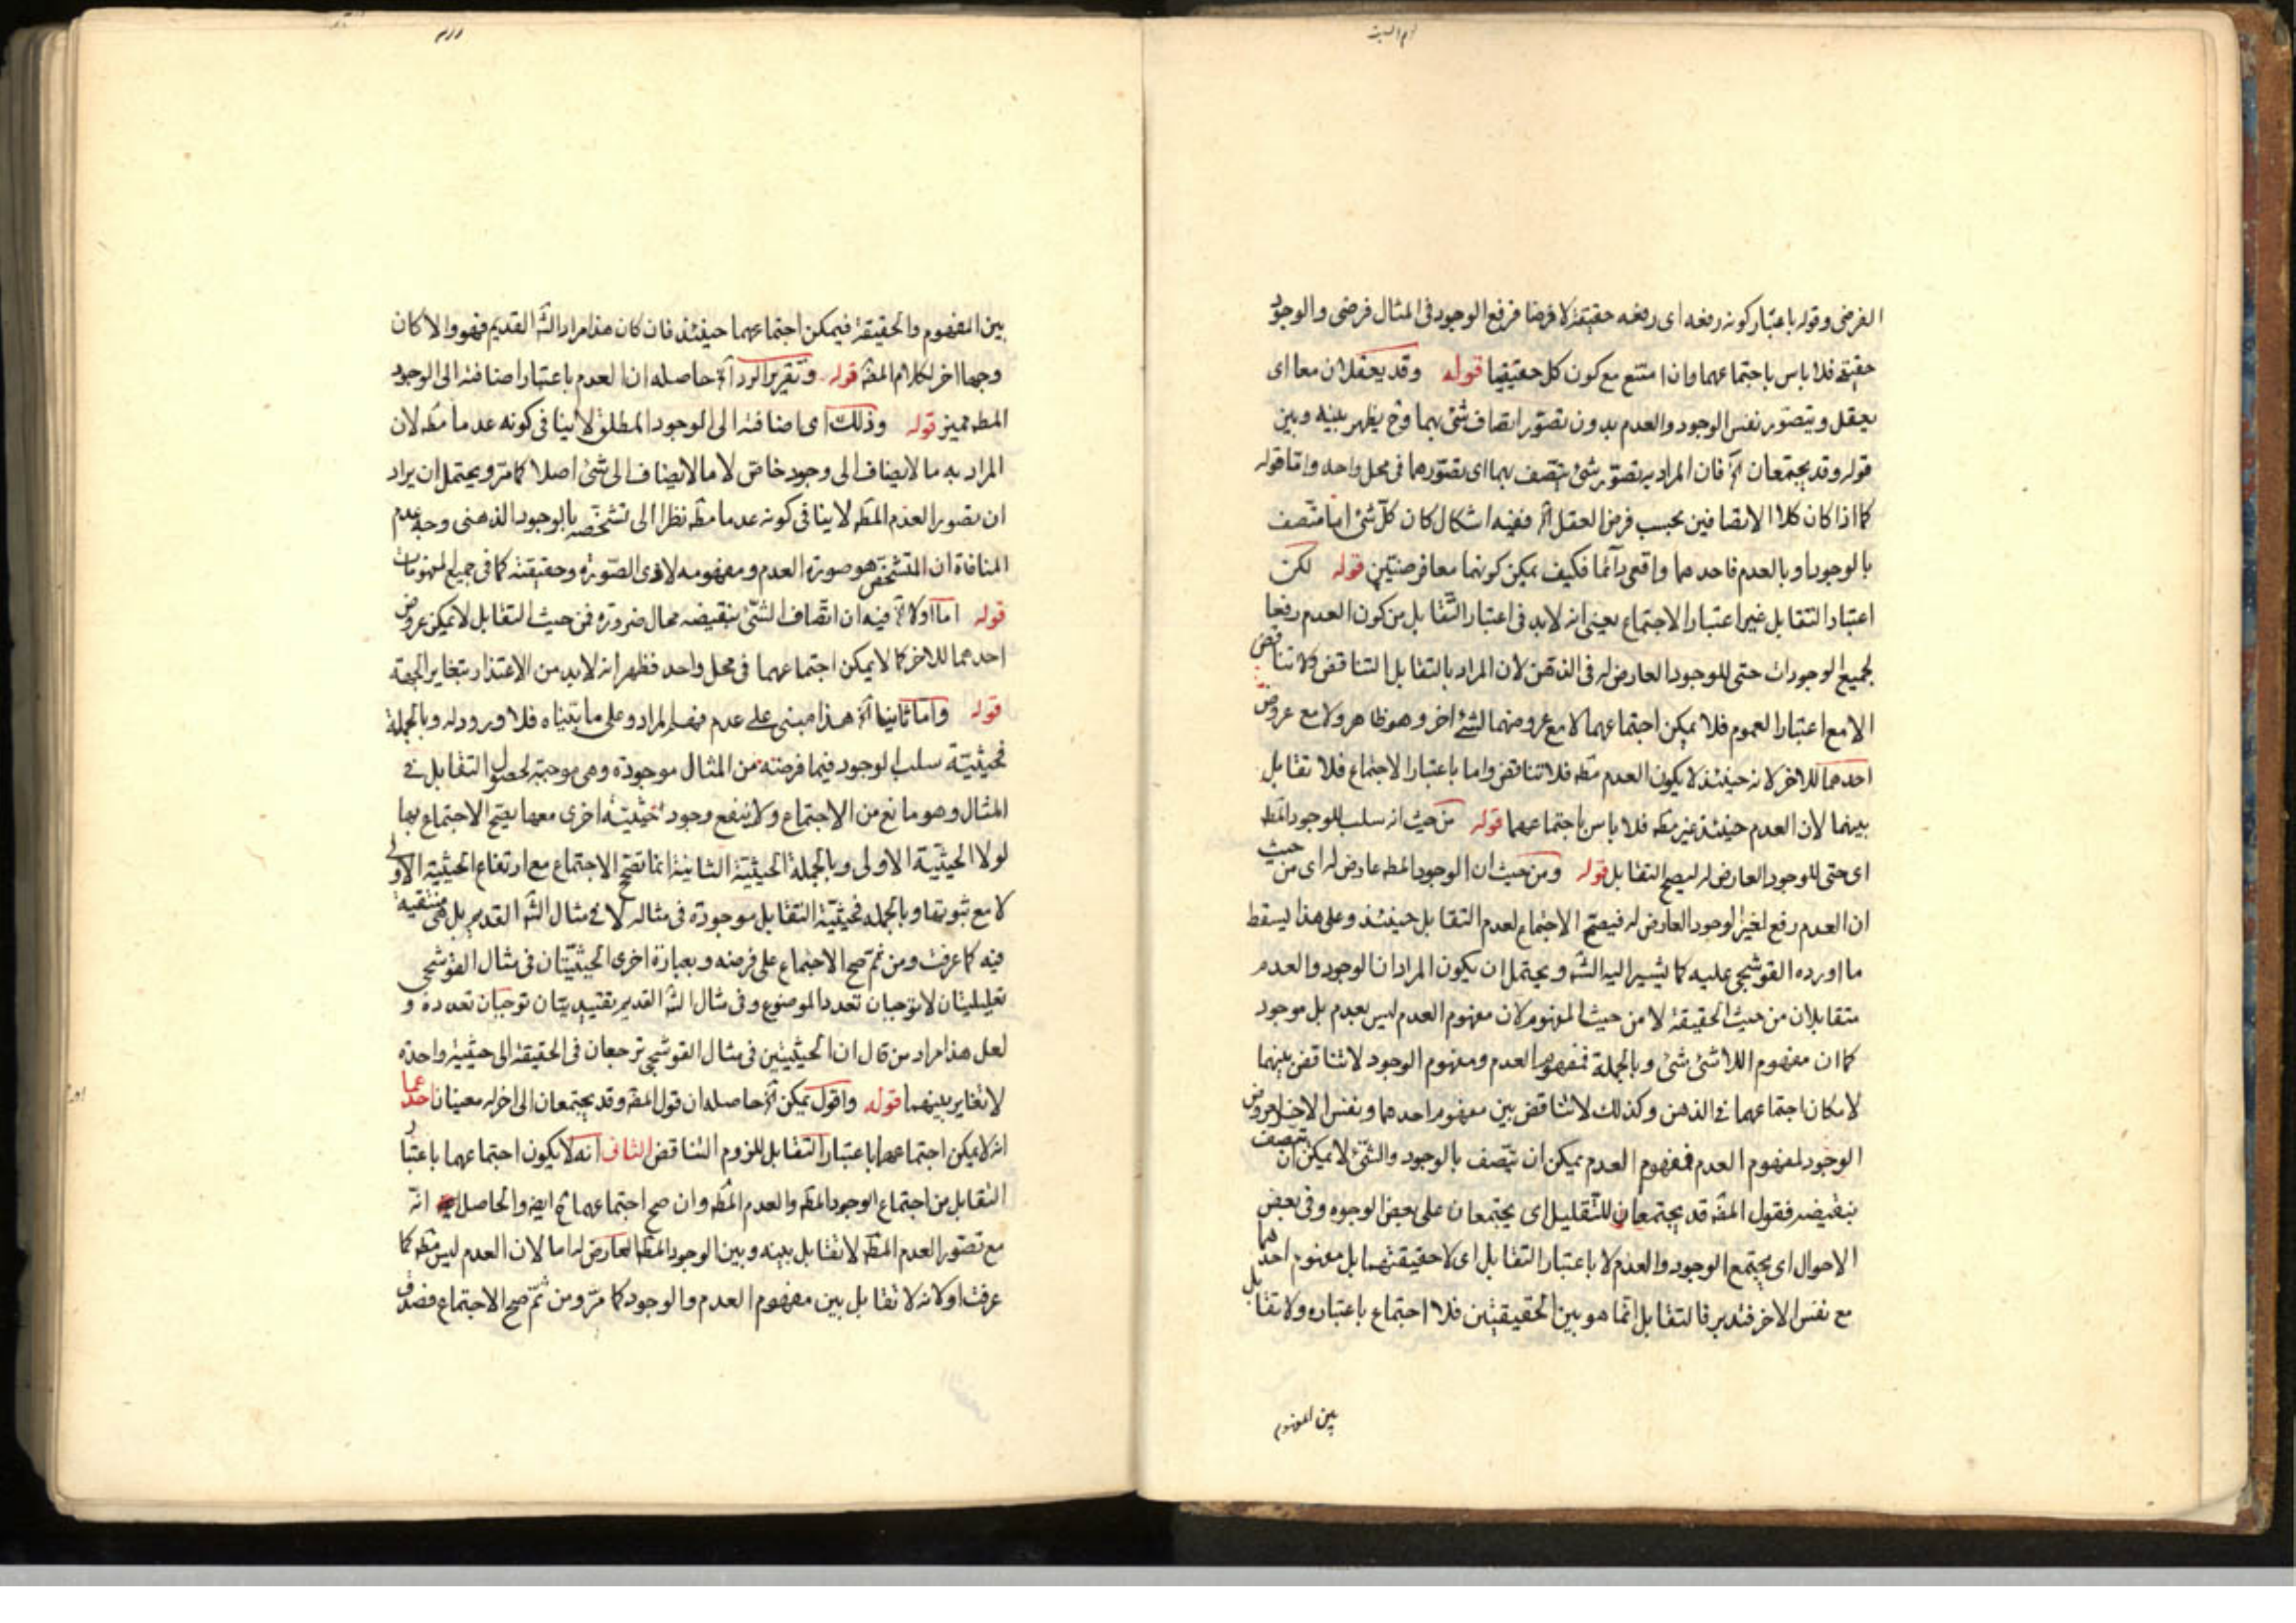 الفرضى وقوله باعتبار كونه رفعه اى رفعه حقيقة لا فرضا فرفع الوجود فى المثال فرضى والوجود
حقيقة فلا باس باجتماعهما وان امتنع مع كون كل حقيقيا قوله وقد يعقلان معا اى
يعقل ويتصور نفس الوجود والعدم بدون تصور اتصاف شئ بهما وح يظهر بينه وبين
قوله وقد يجتمعان آه فان المراد به تصور شئ يتصف بهما اى تصورهما فى محل واحد واما قوله
كما اذا كان كلا الاتصافين بحسب فرض العقل آه ففيه اشكال كان كل شئ اما متصف
بالوجود او بالعدم فاحدهما واقعى دائما فكيف يمكن كونهما معا فرضيتين قوله لكن
اعتبار التقابل غير اعتبار الاجتماع يعنى انه لابد فى اعتبار التقابل من كون العدم رفعا
لجميع الوجودات حتى للوجود العارض له فى الذهن لان المراد بالتقابل التناقض ولا تناقض
الا مع اعتبار العموم فلا يمكن اجتماعهما لا مع عروضهما لشئ اخر وهو ظاهر ولا مع عروض
احدهما للاخر لانه حينئذ لا يكون العدم مطه فلا تناقض واما باعتبار الاجتماع فلا تقابل
بينهما لان العدم حينئذ غير مطه فلا باس باجتماعهما قوله من حيث انه سلب للوجود المطه
اى حتى للوجود العارض له ليصح التقابل قوله ومن حيث ان الوجود المطه عارض له اى من حيث
ان العدم رفع لغير الوجود العارض له فيصح الاجتماع لعدم التقابل حينئذ وعلى هذا ليسقط
ما اورده القوشجى عليه كما يشير اليه الشه ويحتمل ان يكون المراد ان الوجود والعدم
متقابلان من حيث الحقيقة لا من حيث المفهوم لان مفهوم العدم ليس بعدم بل موجود
كما ان مفهوم اللاشئ شئ وبالجملة فمفهوم العدم ومفهوم الوجود لا تناقض بينهما
لامكان اجتماعهما فى الذهن وكذلك لا تناقض بين مفهوم احدهما ونفس الاخر لعروض
الوجود لمفهوم العدم فمفهوم العدم يمكن ان يتصف بالوجود والشئ لا يمكن ان يتصف
بنقيضه فقول المصه قد يجتمعان للتقليل اى يجتمعان على بعض الوجوه وفى بعض
الاحوال اى يجتمع الوجود والعدم لا باعتبار التقابل اى لا حقيقتهما بل مفهوم احدهما
مع نفس الاخر فتدبر فالتقابل انما هو بين الحقيقيتين فلا اجتماع باعتباره ولا تقابل
بين المفهوم
بين المفهوم والحقيقة فيمكن اجتماعهما حينئذ فان كان هذا مراد الشه القديم فهو والا كان
وجها اخر لكلام المصه قوله وتقرير الرد آه حاصله ان العدم باعتبار اضافته الى الوجود
المطه مميز قوله وذلك اى اضافته الى الوجود المطلق لا ينافى كونه عدما مطه لان
المراد به ما لا يضاف الى وجود خاص لا ما لا يضاف الى شئ اصلا كما مر ويحتمل ان يراد
ان تصور العدم المطه لا ينافى كونه عدما مطه نظرا الى تشخصه بالوجود الذهنى وجه عدم
المنافاة ان المتشخص هو صورة العدم ومفهومه لا ذى الصورة وحقيقته كما فى جميع المفهومات
قوله اما اولا آه فيه ان اتصاف الشئ بنقيضه محال ضرورة فمن حيث التقابل لا يمكن عروض
احدهما للاخر كما لا يمكن اجتماعهما فى محل واحد فظهر انه لابد من الاعتذار بتغاير الجهة
قوله واما ثانيا آه هذا مبنى على عدم فهم المراد وعلى ما بيناه فلا ورود له وبالجملة
فحيثية سلب الوجود فيما فرضته من المثال موجودة وهى موجبة لحصول التقابل فى
المثال وهو مانع من الاجتماع ولا ينفع وجود حيثية اخرى معها يصح الاجتماع بها
لولا الحيثية الاولى وبالجملة الحيثية الثانية انما تصح الاجتماع مع ارتفاع الحيثية الاولى
لا مع ثبوتها وبالجمله فحيثية التقابل موجودة فى مثاله لا فى مثال الشه القديم بل هى منتفية
فيه كما عرفت ومن ثم صح الاجتماع على فرضه وبعبارة اخرى الحيثيتان فى مثال القوشجى
تعليليتان لا توجبان تعدد الموضوع وفى مثال الشه القديم تقييديتان توجبان تعدده و
لعل هذا مراد من قال ان الحيثيتين فى مثال القوشجى ترجعان فى الحقيقة الى حيثية واحدة
لا تغاير بينهما قوله واقول يمكن آه حاصله ان قول المصه وقد يجتمعان الى اخره معنيان احدهما
انه لا يمكن اجتماعهما باعتبار التقابل للزوم التناقض الثانى انه لا يكون اجتماعهما باعتبار
التقابل من اجتماع الوجود المطه والعدم المطه وان صح اجتماعهما ح ايضه والحاصل انه
مع تصور العدم المطه لا تقابل بينه وبين الوجود المطه العارض له اما لان العدم ليس مطه كما
عرفت او لانه لا تقابل بين مفهوم العدم والوجود كما مر ومن ثم صح الاجتماع فصدق